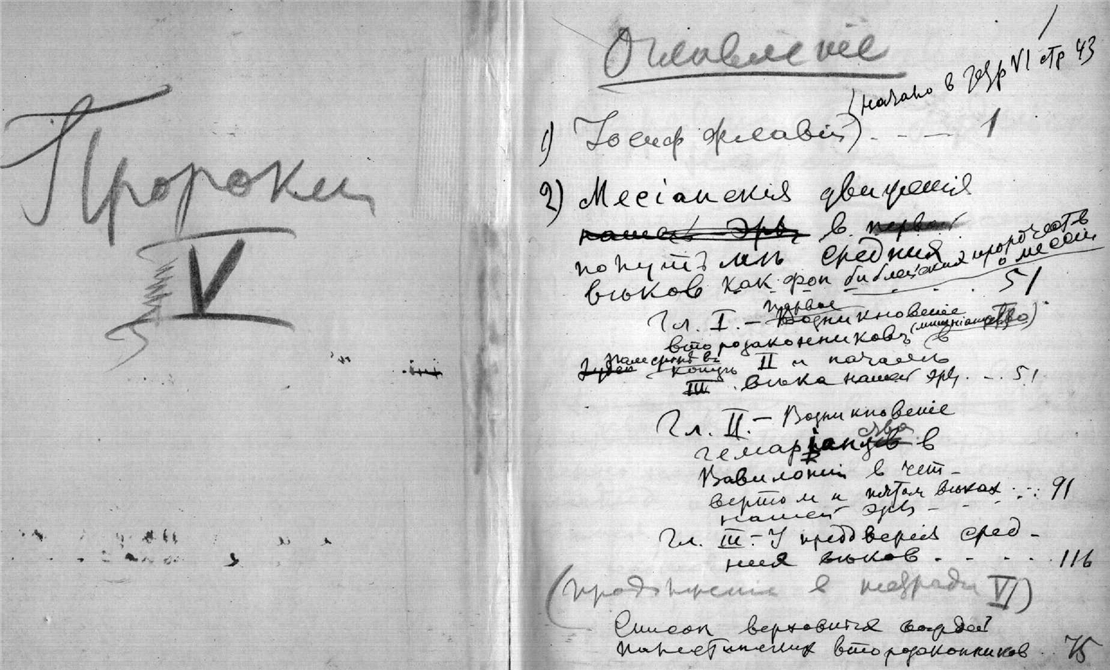 Пророки
V
Оглавленіе
(начало в тетр VI стр 43
1) Іосиф Флавій) . — — 1
2) Месіанскія движенія
нашей эры в первой
полупуть средних
вѣков как фон библейских пророчеств
о мессіи . . . . 51
Гл. I. — первое Возникновеніе
второзаконников (мишнаитство) в
конць II и началѣ
III вѣка нашей эры . — . 51
Гл. II. — Возникновеніе
гемар іанства в
Вавилоніи в чет-
вертом и пятом вѣках . . . 91
нашей эры — — .
Гл. III. — У преддверія сред-
них вѣков . — . . — . . 116
(продолженіе в тетради VI)
Список верховных вождей
палестинских второзаконников . . 75